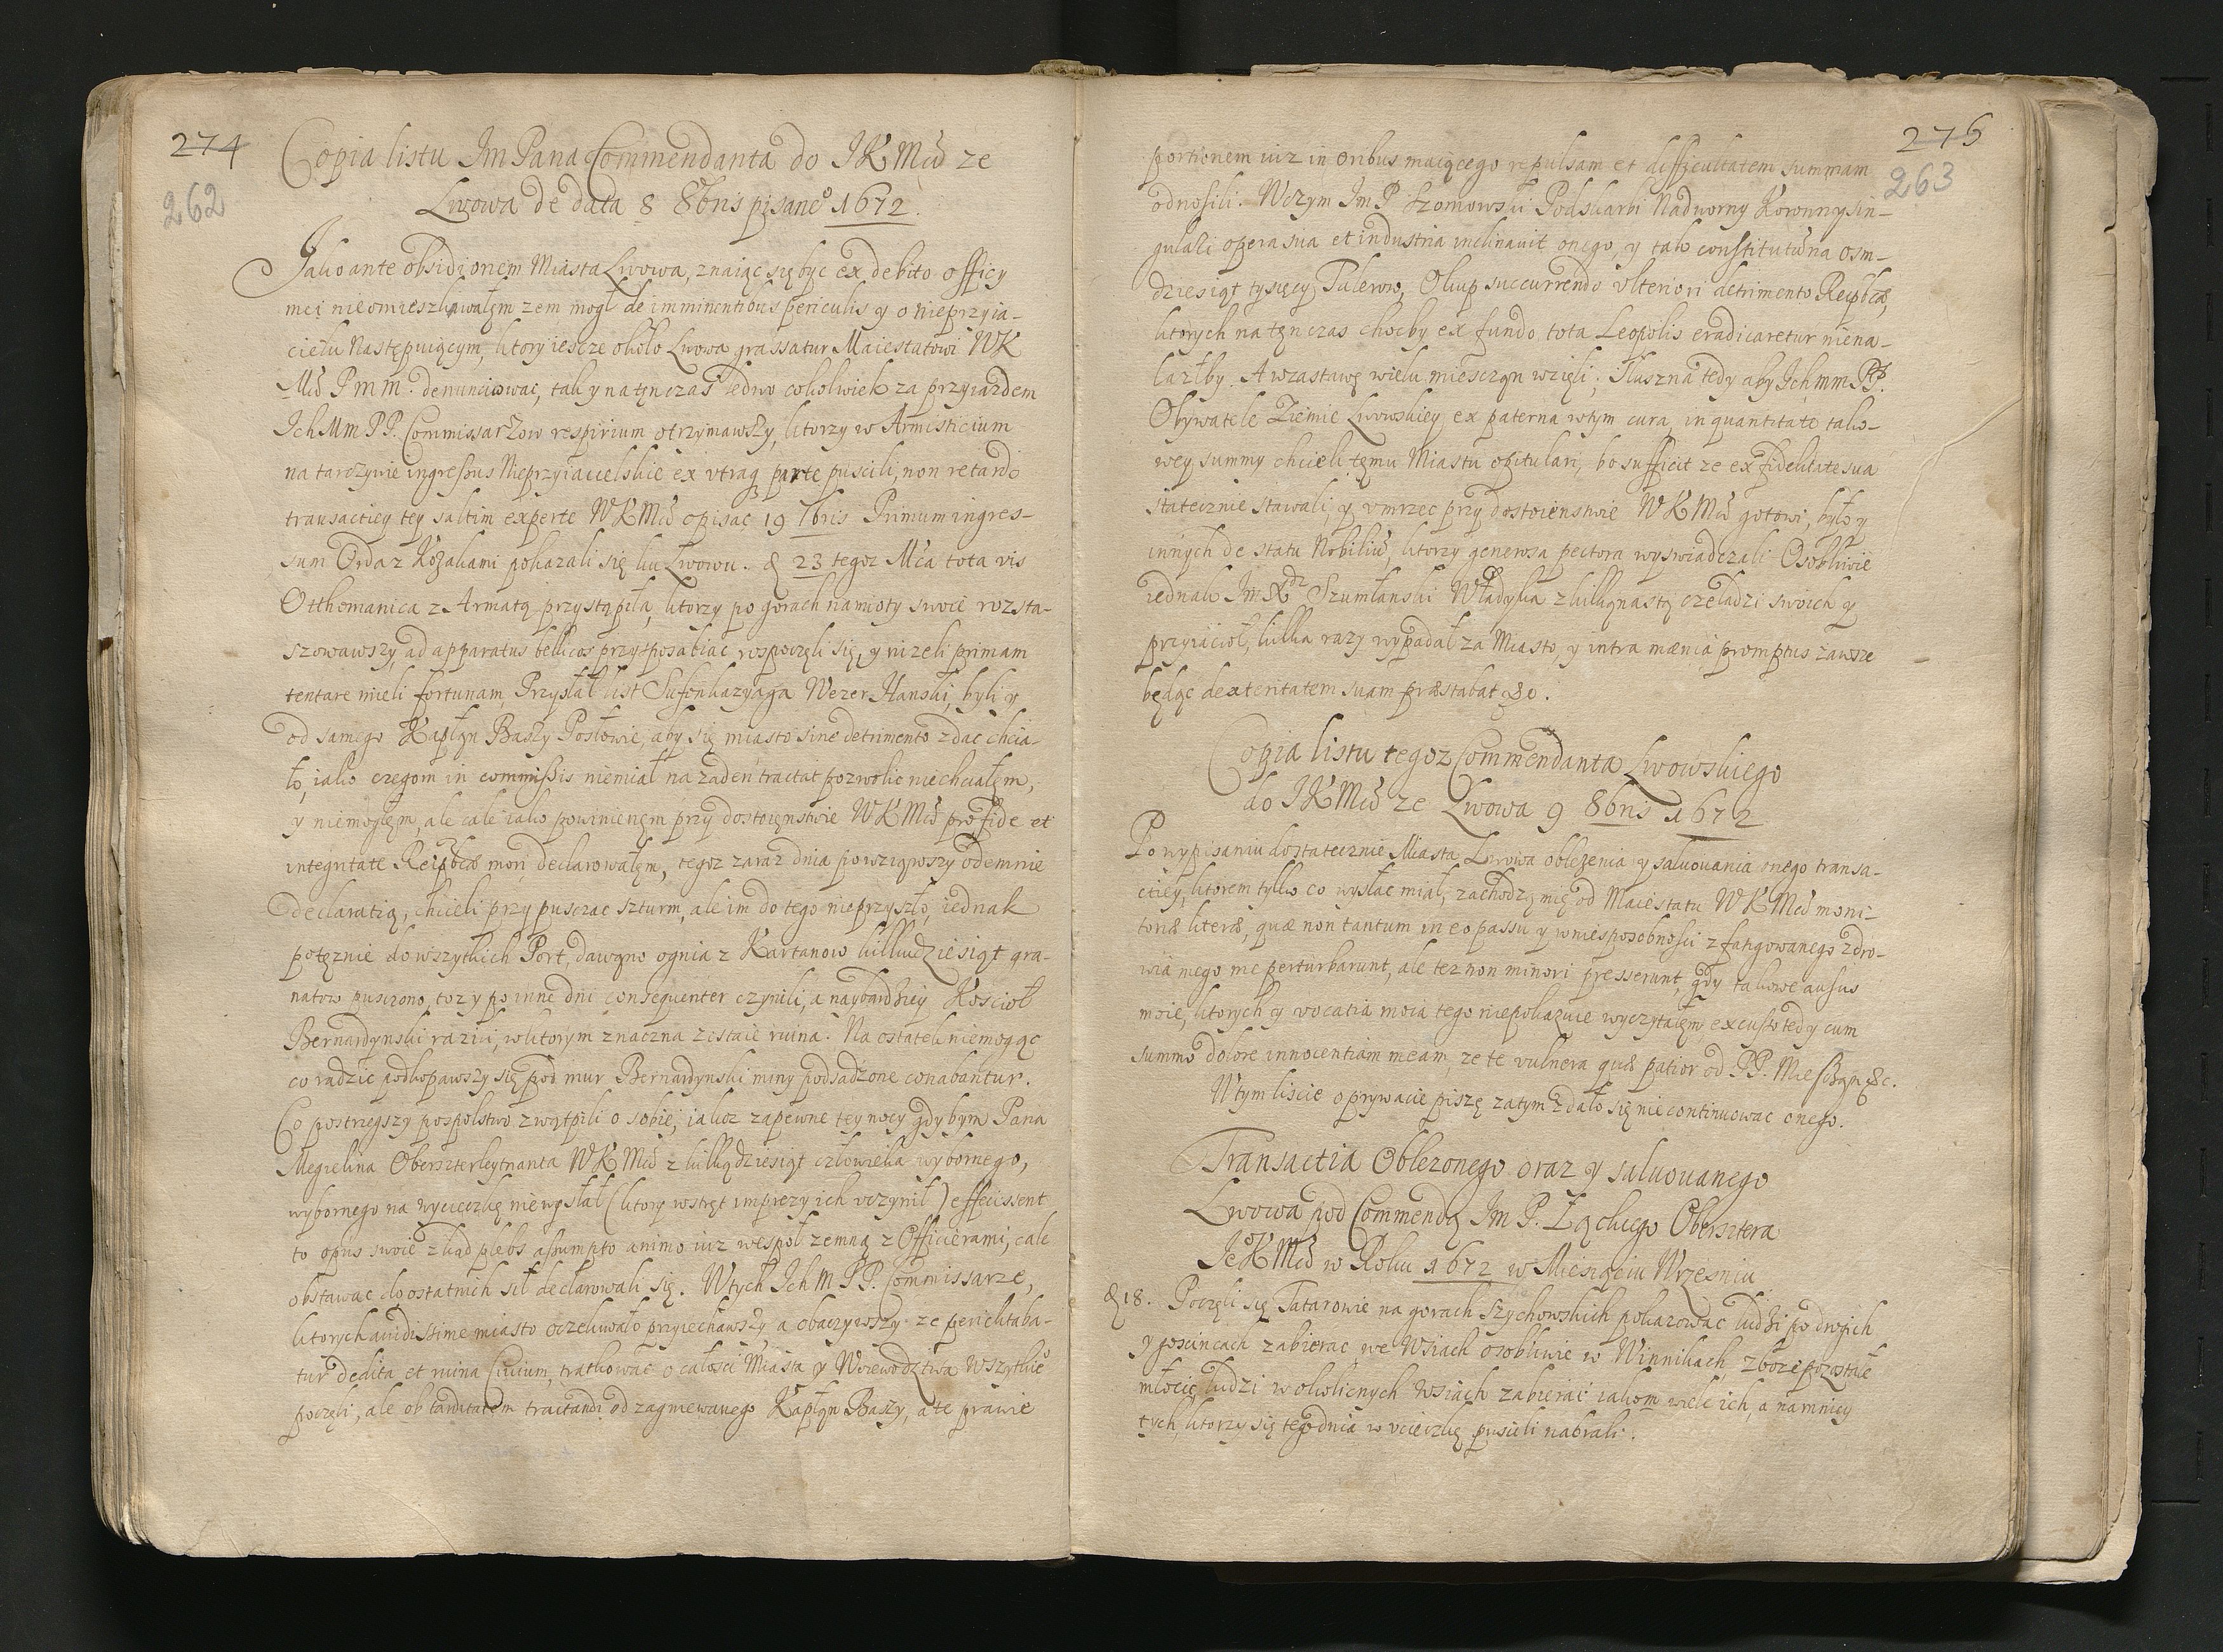 274
262
Copia listu Jm Pana Commendanta do JKMci ze
Lwowa de data 8 8bris pisane° 1672.
Jako ante obsidionem Miasta Lwowa, znaiąc się byc ex debito officy
mei nieomieszkawałęm zem mogł de imminentibus periculis y o nieprzyia-
cielu Następuiącym, ktory iescze około Lwowa grassatur Maiestatowi WK
Mci P m m. denunciowac, tak y na tęn czas ledwo cokolwiek za przyiazdem
Ich Mm PP. Commissarzow respirium otrzymawszy, ktorzy w Armisticium
na tarczywie ingressus Nieprzyiacielskie ex vtraq parte puscili, non retardo
transactiey tey saltim experte WKMci opisac 19 7bris Primum ingres-
sum Orda z Kozakami pokazali się ku Lwowu. & 23 tegoz Mca tota vis
Otthomanica z Armatą przystąpiła, ktorzy po gorach namioty swoie rozsta-
szowawszy, ad apparatus bellicos przysposabiac rospoczęli się, y nizeli primam
tentare mieli fortunam, Przysłał list Sufonkazyaga Wezer Hanski, byli y
od samego Kapłąn Baszy Posłowie, aby się miasto sine detrimento zdac chcia-
ło, iako czegom in commissis niemiał na zaden tractat pozwolic niechciałęm,
y niemogłęm, ale cale iako powinienęm przy dostoięnstwie WKMci pro fide et
integritate Reipbcæ mori declarowałęm, tegoz zaraz dnia powziąwszy odemnie
declaratią, chcieli przypusczac szturm, ale im do tego nieprzyszło, iednak
potęznie do wszytkich Port, dawąno ognia z Kartanow kilkudziesiąt gra-
natow pusczono, toz y po inne dni consequenter czynili, a naybardziey Koscioł
Bernardynski razili, w ktorym znaczna zostaie ruina. Na ostatek niemogąc
co radzic podkopawszy się pod mur Bernardynski miny podsadzone conabantur.
Co postrzegszy pospolstwo zwątpili o sobie, iakoz zapewne tey nocy gdybym Pana
Megielina Oberszterleytnanta WKMci z kilkądziesiąt człowieka wybornego,
wybornego na wycieczkę niewysłał (ktory wstręt imprezy ich vczynił) effecissent
to opus swoie zkąd plebs assumpto animo iuz wespoł zemną z Officierami, cale
obstawac do ostatnich sił declarowali się. W tych Ich M PP. Commissarze,
ktorych auidissime miasto oczekiwało przyiechawszy, a obaczywszy ze periclitaba-
tur dedita et ruina Ciuium, traktowac o całosci Miasta y Woiewodztwa wszytkie°
poczęli, ale ob tarditatem tractandi od zagniewanego Kapłąn Baszy, a te prawie
275
263
portionem iuz in oribus maiącego repulsam et difficultatem summam
odnosili. W czym Jm P Szomowski Podskarbi Nadworny Koronny sin-
gulari opera sua et industria inclinauit onego, y tak constitutum na osm-
dziesiąt tysięcy Talerow, Okup succurrendo vlteriori detrimento Reipbcæ,
ktorych na tęn czas chocby ex fundo tota Leopolis eradicaretur niena-
lazłby. A w zastawę wielu miescząn wzięli. Słuszna tedy aby Ich mm PP.
Obywatele Ziemie Lwowskiey ex paterna w tym cura, in quantitate tako-
wey summy chcieli tęmu Miastu opitulari, bo sufficit ze ex fidelitate sua
statecznie stawali, y vmrzec przy dostoienstwie WKMci gotowi, było y
innych de statu Nobiliu, ktorzy generosa pectora wyswiadczali Osobliwie
iednak Jm Xdz Szumlanski Władyka z kilkąnastą czeladzi swoich y
przyiacioł, kilka razy wypadał za Miasto, y intra mænia promptus zawsze
będąc dexteritatem suam præstabat &c.
Copia listu tegoz Commendanta Lwowskiego
do JKMci ze Lwowa 9 8bris 1672
Po wypisaniu dostatecznie Miasta Lwowa oblęzenia y saluowania onego transa-
ctiey, ktorem tylko co wysłac miał, zachodzą mię od Maiestatu WKMci moni-
toriæ literæ, quæ non tantum in eo passu y w niesposobnosci zfatigowanego zdro-
wia mego me perturbarunt, ale tez non minori presserunt, gdy takowe ausus
moie, ktorych y vocatia moia tego niepokazuie wyczytałęm, excuso tedy cum
summo dolore innocentiam meam, ze te vulnera quæ patior od PP. Miesczan &c.
W tym liscie o prywacie piszę zatym zdało się nie continuowac onego.
Transactia Oblezonego oraz y saluowanego
Lwowa pod Commendą Jm P. Łąckiego Obersztera
Je°KMci w Roku 1672 w Miesiącu Wrzesniu
& 18. Poczęli się Tatarowie na gorach Szychowskich pokazowac ludzi po drogich
y goscincach zabierac we Wsiach osobliwie w Winnikach, zboze pozostałe
młocic, ludzi w okolicznych wsiach zabierac iakom wiele ich, a namniey
tych, ktorzy się tego dnia w vcieczkę puscili nabrali.